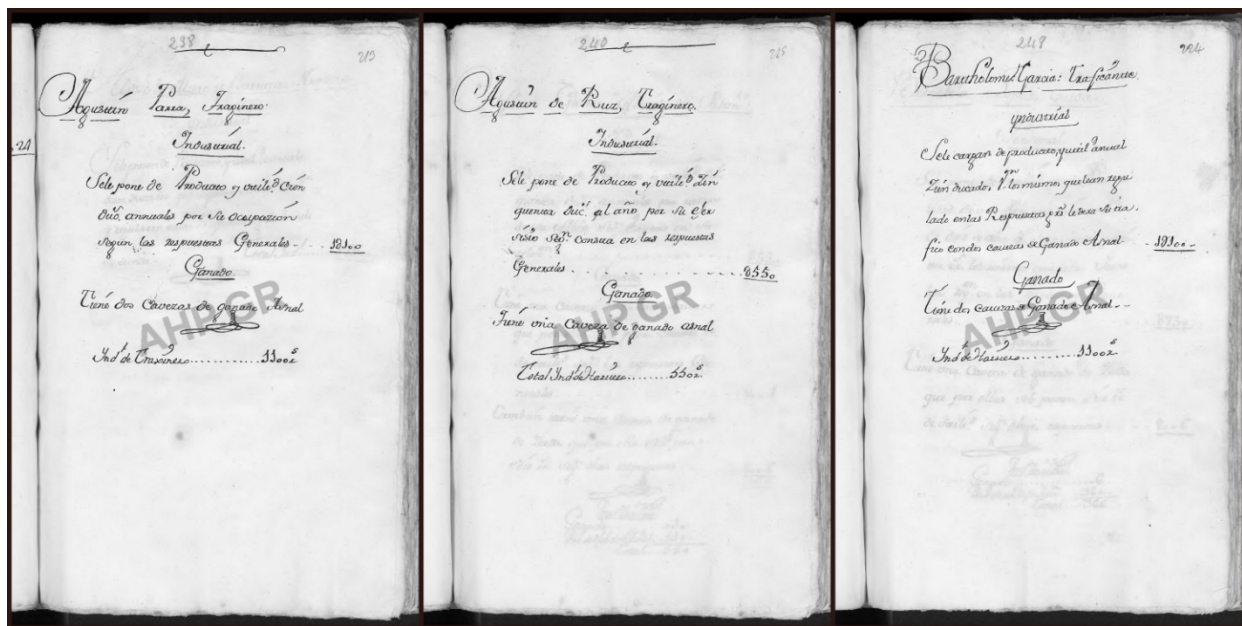 238
213
Agustin Parra, Traginero.
Industrial.
Sele pone de Producto y utile.d Cien
duc.s annuales por su ocupazion
segun las respuestas Generales - - 1D100
Ganado
Tiene dos Cavezas de ganado Asnal
AHPGR
Ind.l de Traxinero.......... 1100 r.s
. 21
240
215
Agustin de Ruz, Traginero.
Industrial.
Sele pone de Producto y utile.d Zin
quenta duc.s al año por su exer
sisio seg.n consta en las respuestas
Generales . . . . . . . . . . D550
Ganado.
Tiene una Caveza de ganado asnal
AHPGR
Total Ind.l de Harriero....... 550 r.s
248
224
Bartholome Garcia: Traficante
Yndustrial
Sele cargan de producto, y util annual
Zien ducados, P.r los mismos, que ban regu
lado en las Respuestas
fico con dos cauezas de Ganado Asnal - 1D100 -
Ganado
Tiene dos cauezas de Ganado Asnal -
AHPGR
Ind.l de Harriero....... 1100 r.s